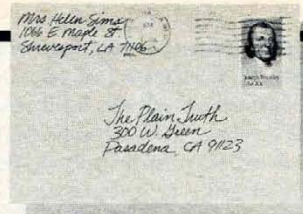 Mrs Helen Sims
1066 E. Maple St
Shreveport, LA 71106
Joseph Priestley
The Plain Truth
300 W. Green
Pasadena, CA 91123